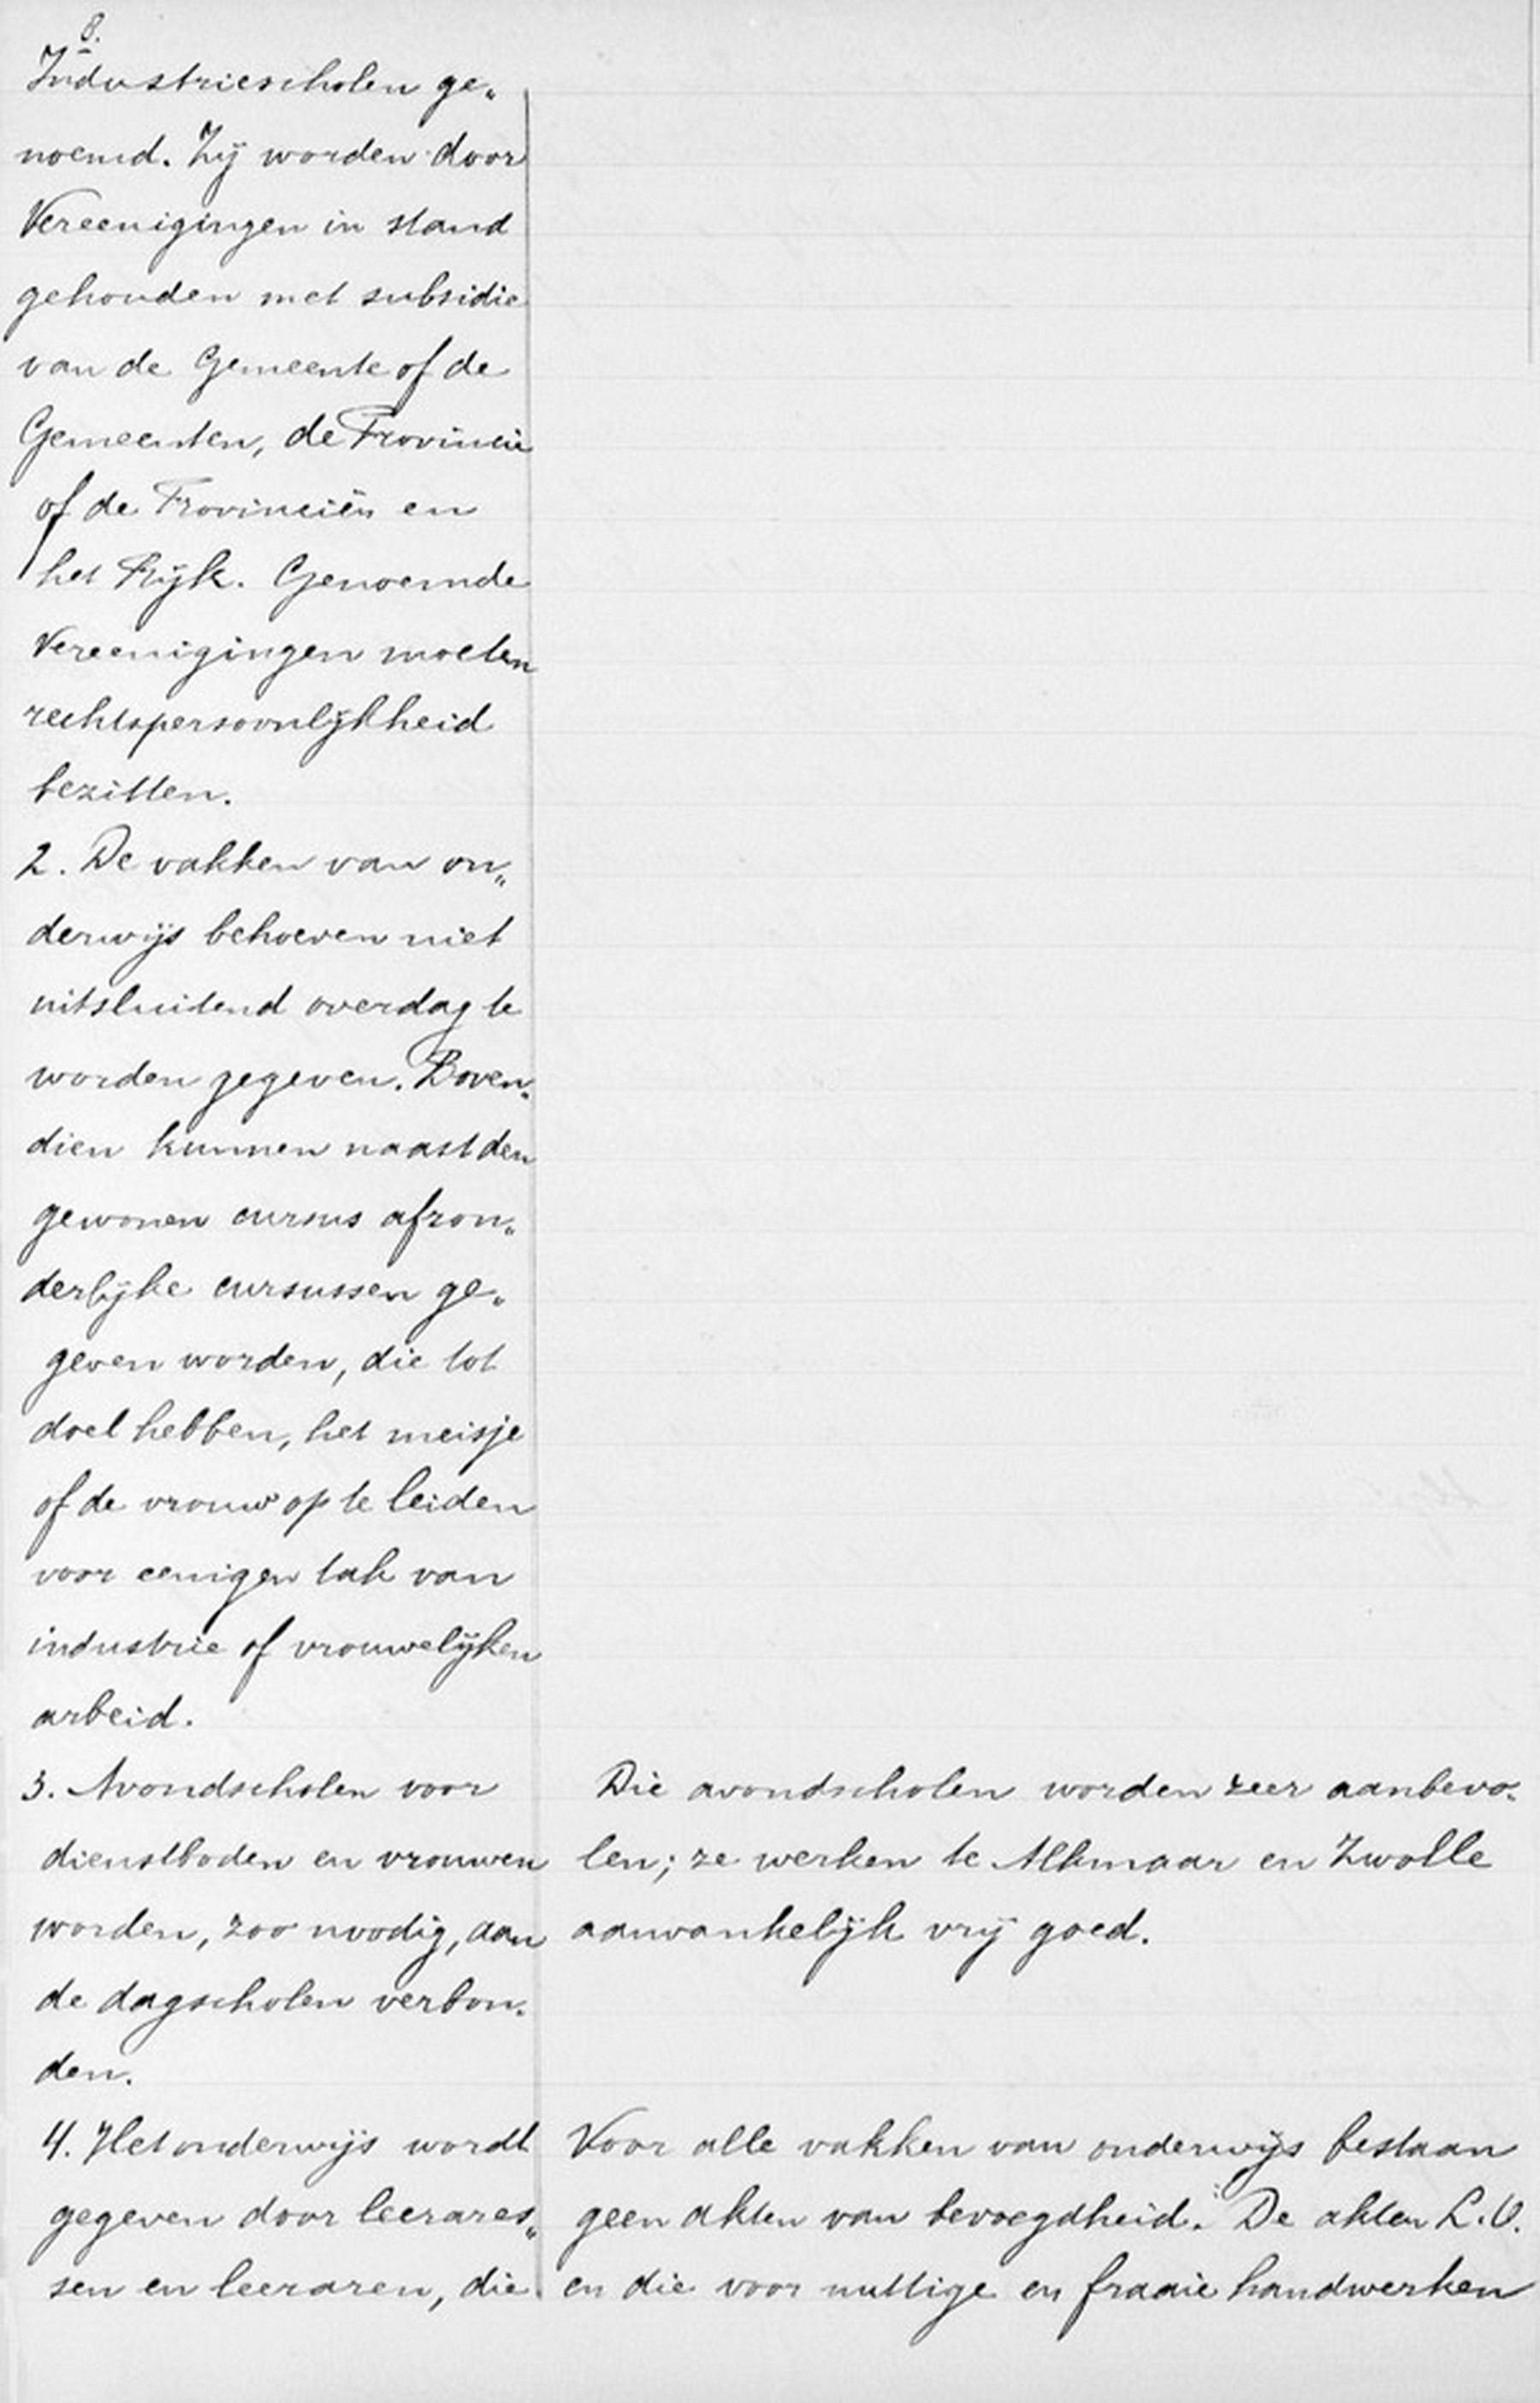 8.
Industriescholen ge„
noemd. Zij worden door
Vereenigingen in stand
gehouden met subsidie
van de Gemeente of de
Gemeenten, de Provincie
of de Provinciën en
het Rijk. Genoemde
Vereenigingen moeten
rechtspersoonlijkheid
bezitten.
2. De vakken van on„
derwijs behoeven niet
uitsluitend overdag te
worden gegeven. Boven„
dien kunnen naast den
gewonen cursus afzon„
derlijke cursussen ge„
geven worden, die tot
doel hebben, het meisje
of de vrouw op te leiden
voor eenigen tak van
industrie of vrouwelijken
arbeid.
3. Avondscholen voor
dienstboden en vrouwen
worden, zoo noodig, aan
de dagscholen verbon„
den.
4. Het onderwijs wordt
gegeven door leerares„
sen en leeraren, die
Die avondscholen worden zeer aanbevo„
len; ze werken te Alkmaar en Zwolle
aanvankelijk vrij goed.
Voor alle vakken van onderwijs bestaan
geen akten van bevoegdheid. De akten L.O.
en die voor nuttige en fraaie handwerken